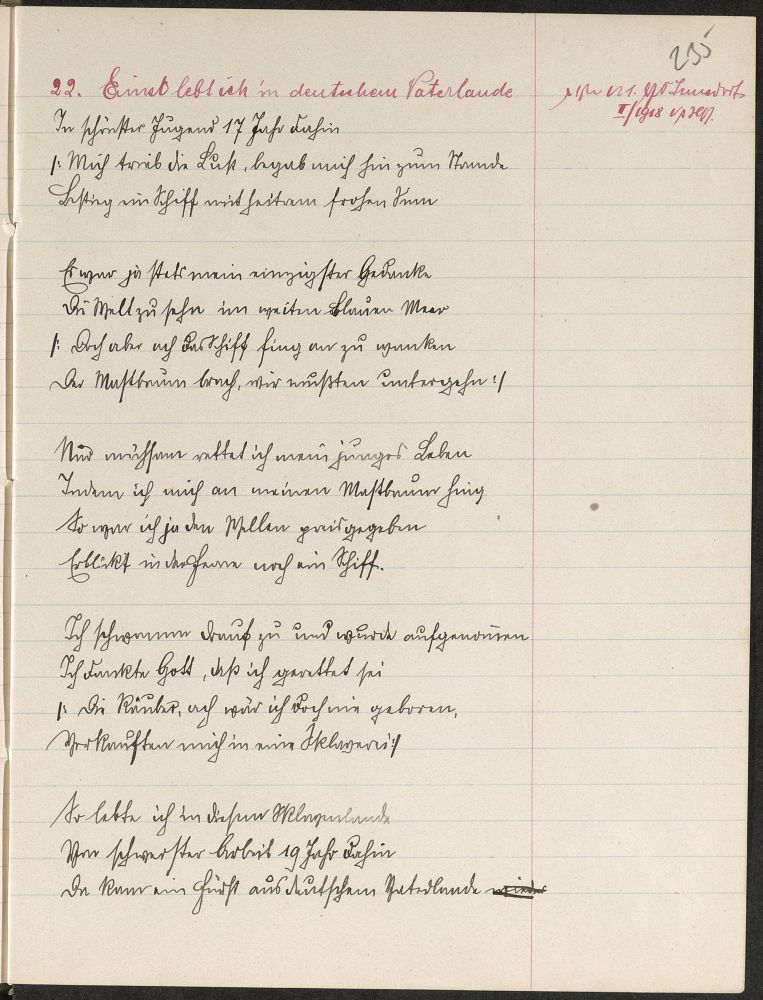 235
22. Einst lebt ich in deutschem Vaterlande
In schönster Jugend 17 Jahr dahin
|: Mich trieb die Lust, begab mich hin zum Strande
Bestieg ein Schiff mit heiterem frohen Sinn
Es war ja stets mein einzigster Gedanke
Die Welt zu sehn im weiten blauen Meer
|: Doch aber ach das Schiff fing an zu wanken
Der Mastbaum brach, wir mußten untergehn :|
Nur mühsam rettet ich mein junges Leben
Indem ich mich an meinen Mastbaum hing
So war ich ja den Wellen preisgegeben
Erblickt in der Ferne noch ein Schiff.
Ich schwamm drauf zu und wurde aufgenommen
Ich dankte Gott, daß ich gerettet sei
|: Die Räuber, ach wär ich doch nie geboren,
Verkauften mich in eine Sklaverei :|
So lebte ich in diesem Sklavenlande
Von schwerster Arbeit 19 Jahr dahin
Da kam ein Fürst aus deutschem Vaterlande wieder
II/1918